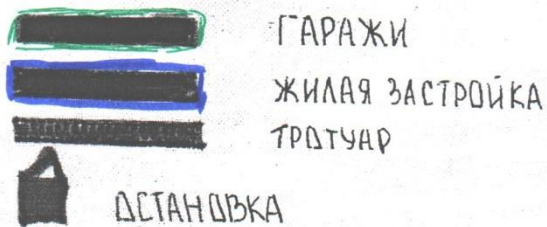 ГАРАЖИ
ЖИЛАЯ ЗАСТРОЙКА
ТРОТУАР
ОСТАНОВКА